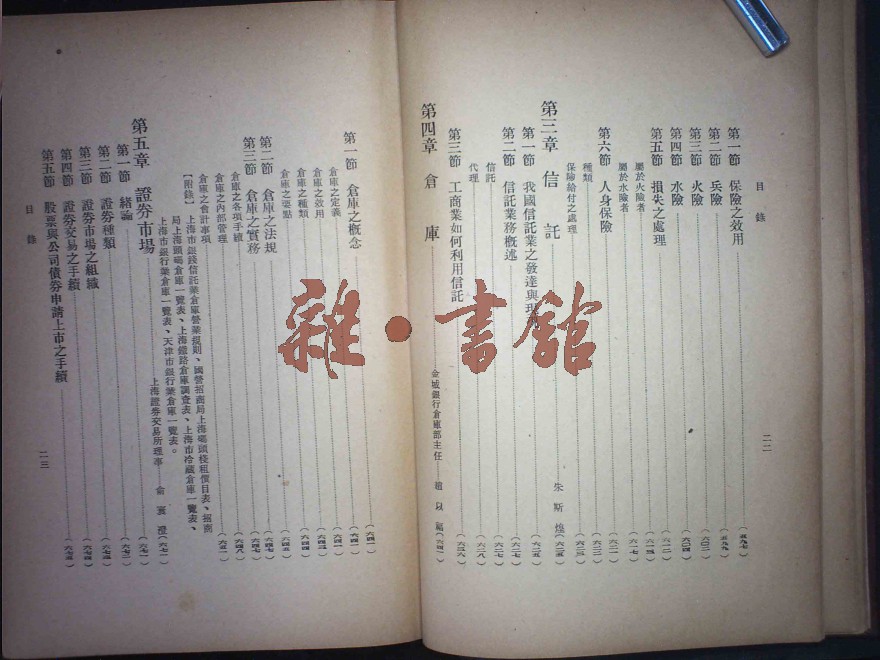 目錄
第一節 保險之效用 (五九七)
第二節 兵險 (五九九)
第三節 火險 (六〇二)
第四節 水險 (六〇四)
第五節 損失之處理
屬於火險者
屬於水險者
第六節 人身保險
種類
保險給付之處理
第三章 信託 朱斯煌
第一節 我國信託業之發達與現
第二節 信託業務概述 (六二七)
信託 (六二七)
代理 (六二八)
第三節 工商業如何利用信託
第四章 倉庫 金城銀行倉庫部主任
二二
第一節 倉庫之概念 (六四一)
倉庫之定義 (六四一)
倉庫之效用
倉庫之種類 (六四四)
倉庫之要點 (六四五)
第二節 倉庫之法規 (六四七)
第三節 倉庫之實務 (六四七)
倉庫之各項手續 (六四八)
倉庫之內部管理
倉庫之會計事項
【附錄】上海市銀錢信託業倉庫營業規則、國營招商局上海碼頭棧租價目表、招商
局上海碼頭倉庫一覽表、上海鐵路倉庫調查表、上海市冷藏倉庫一覽表、
上海市銀行業倉庫一覽表、天津市銀行業倉庫一覽表。
第五章 證券市場 上海證券交易所理事
第一節 緒論 (六七一)
第二節 證券種類 (六七二)
第三節 證券市場之組織 (六七四)
第四節 證券交易之手續 (六七五)
第五節 股票與公司債券申請上市之手續
目錄
二三
雜·書館